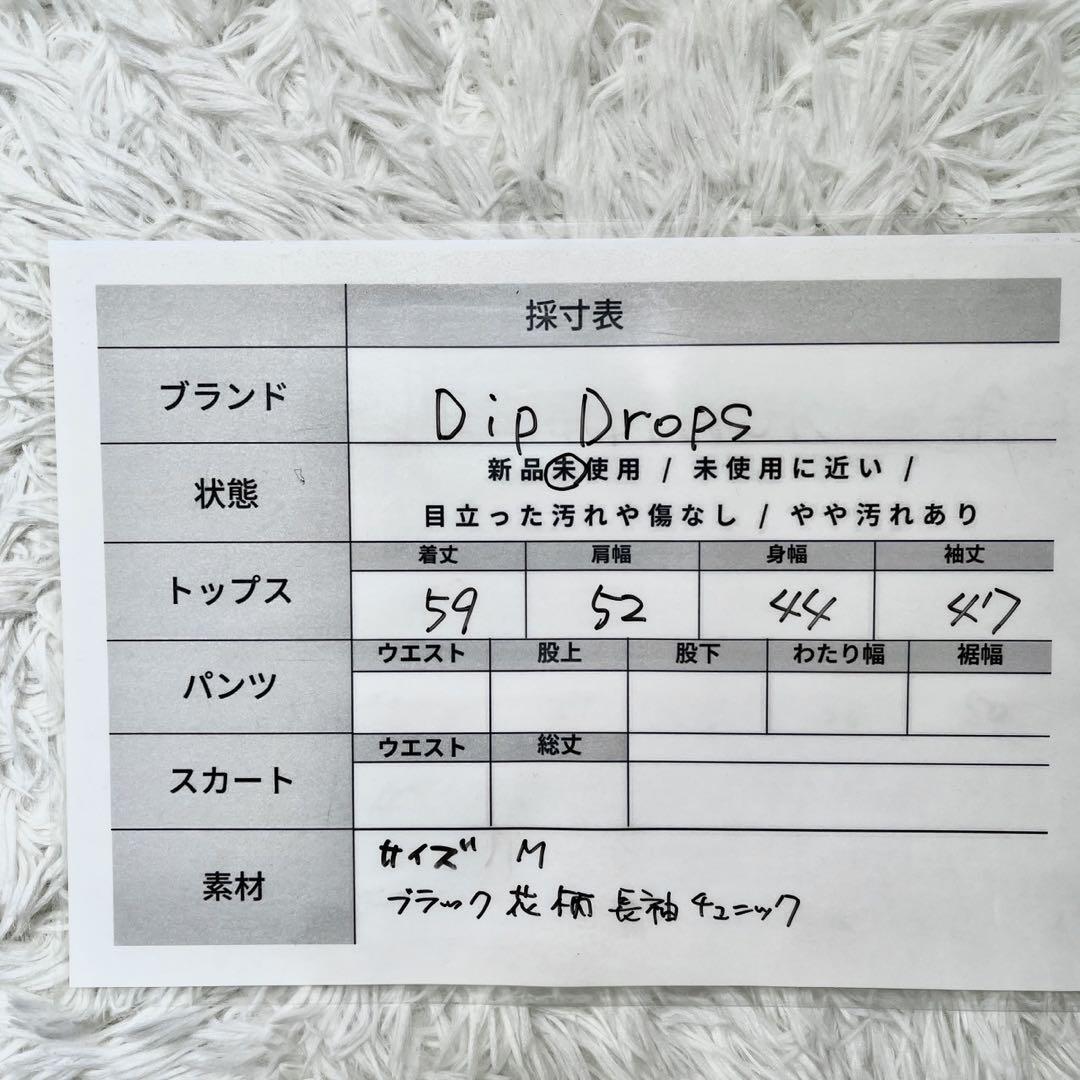 採寸表
ブランド
Dip Drops
状態
新品未使用 / 未使用に近い /
目立った汚れや傷なし / やや汚れあり
トップス
着丈 肩幅 身幅 袖丈
59 52 44 47
パンツ
ウエスト 股上 股下 わたり幅 裾幅
スカート
ウエスト 総丈
素材
サイズ M
ブラック 花柄 長袖 チュニック